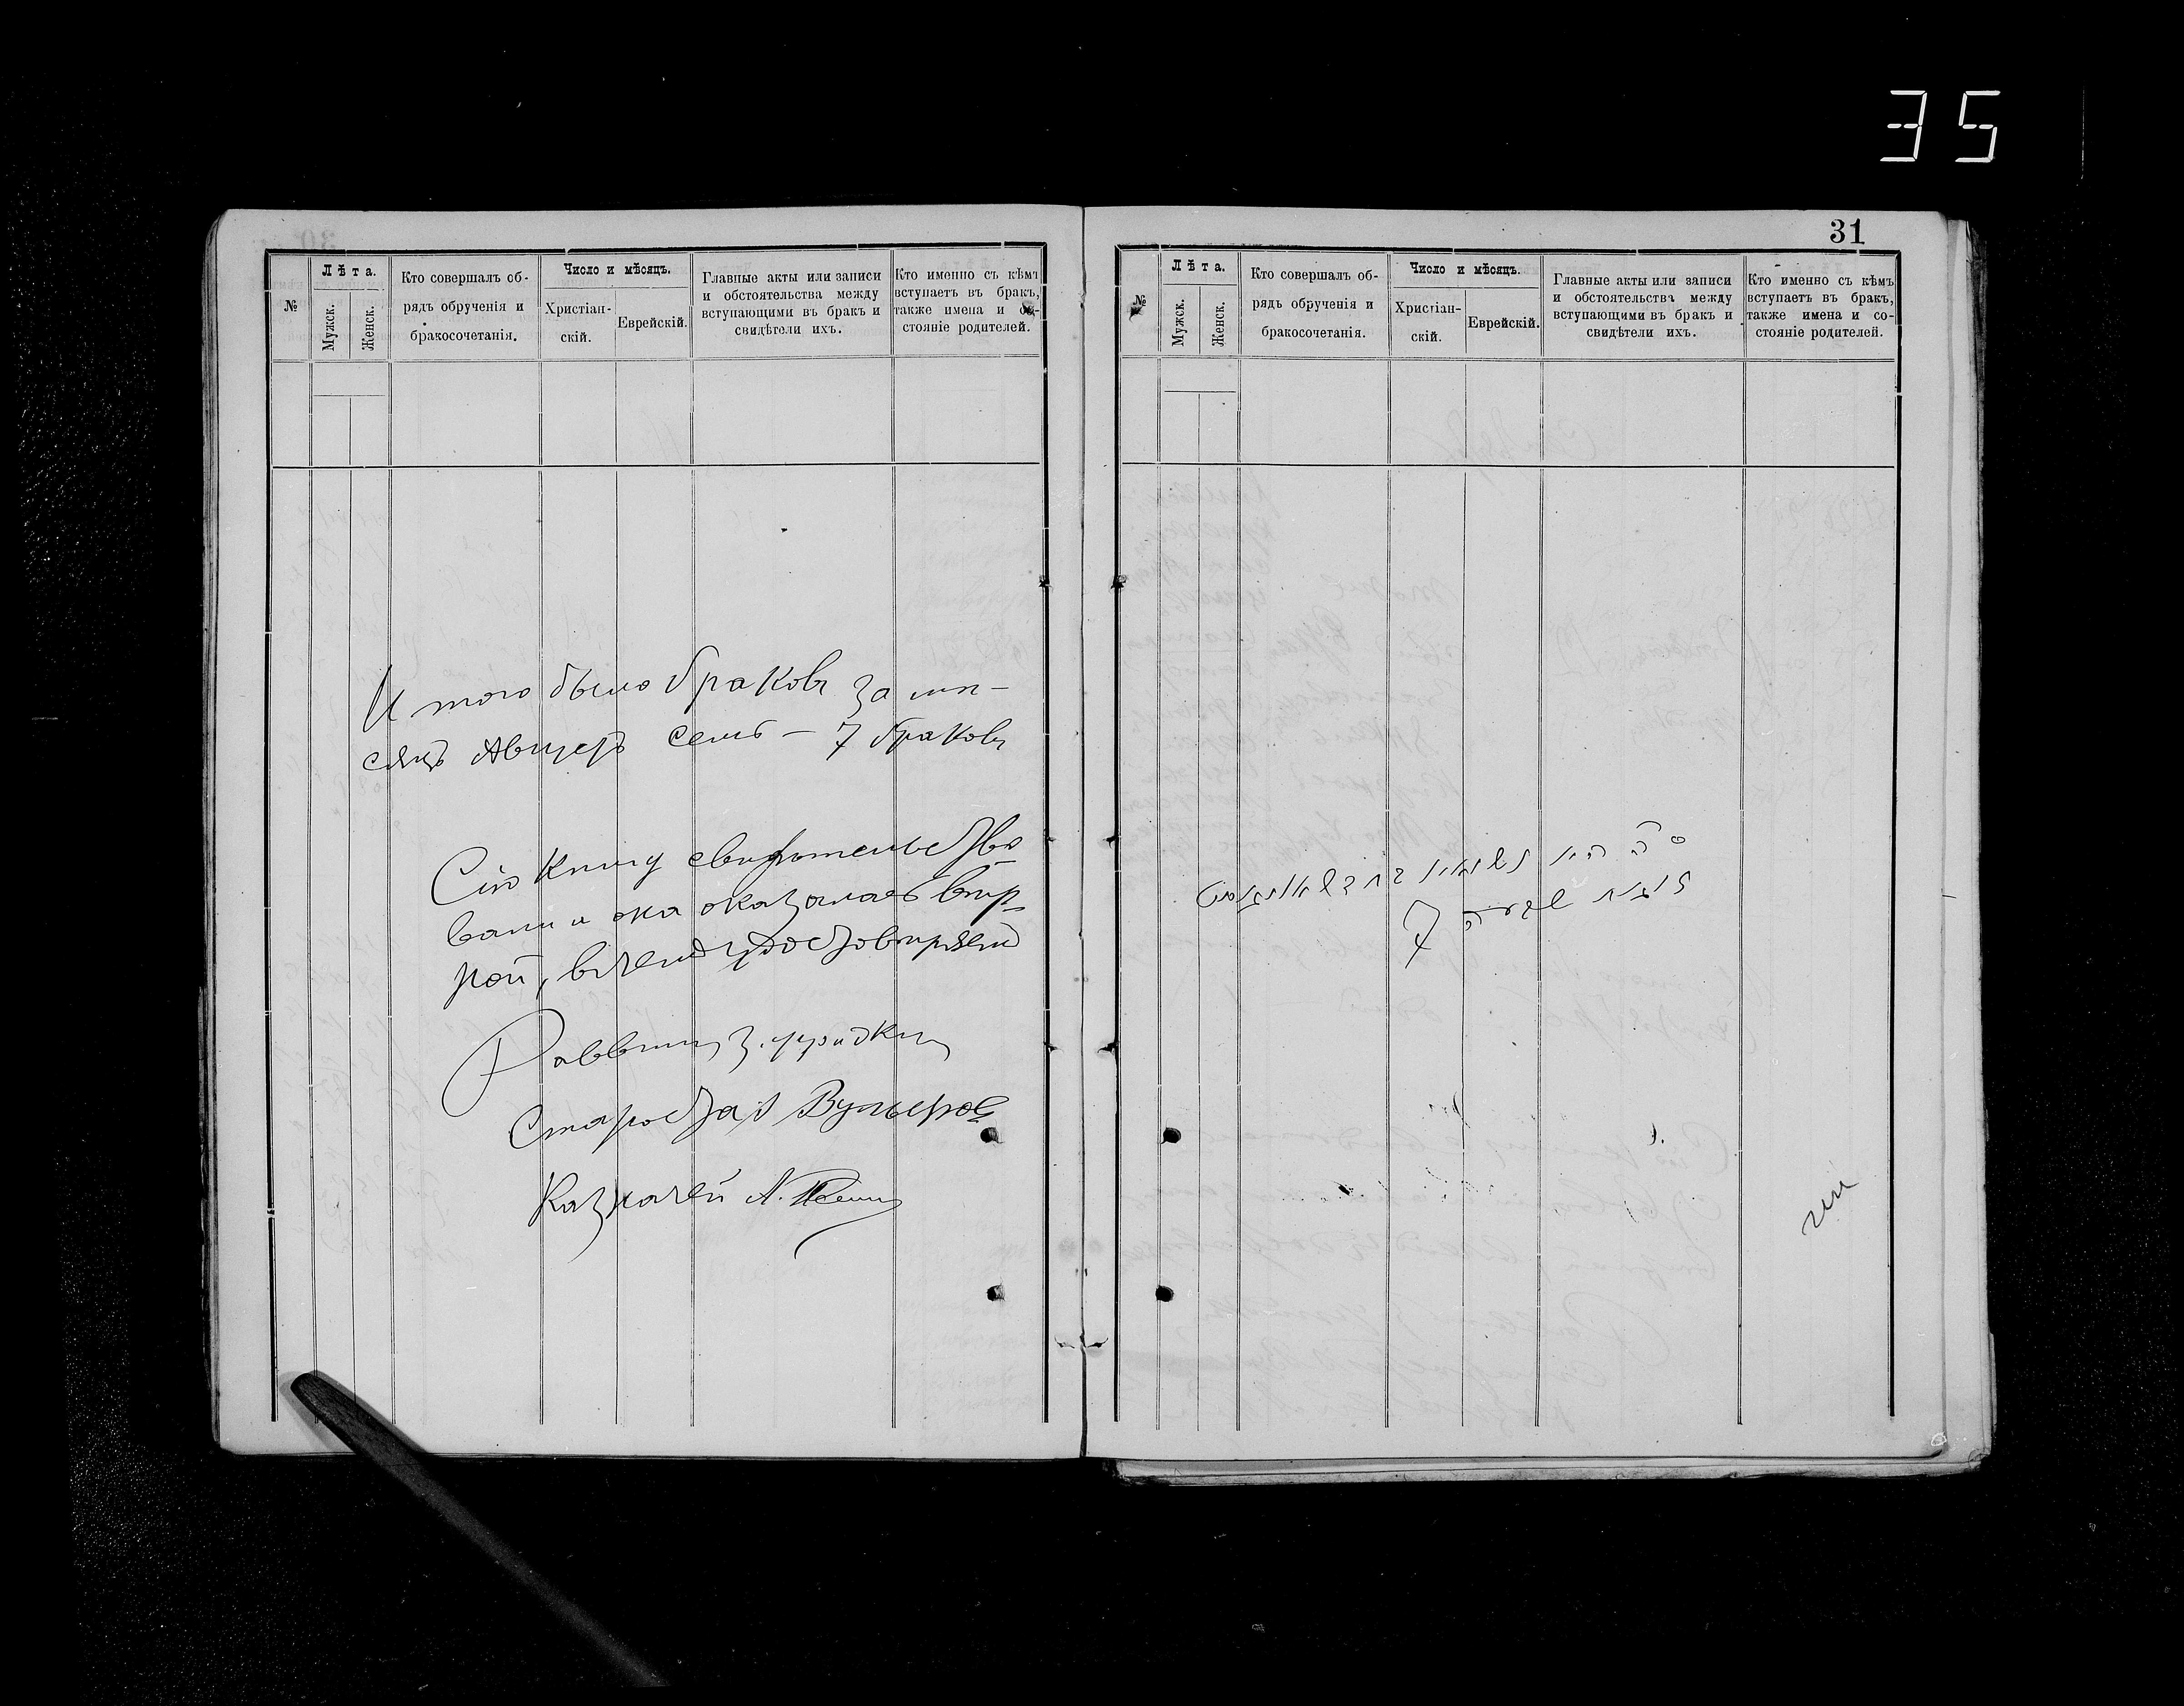 35
31
№
Лѣта.
Мужск.
Женск.
Кто совершалъ об-
рядъ обрученія и
бракосочетанія.
Число и мѣсяцъ.
Христіан-
скій.
Еврейскій.
Главные акты или записи
и обстоятельства между
вступающими въ бракъ и
свидѣтели ихъ.
Кто именно съ кѣмъ
вступаетъ въ бракъ,
также имена и со-
стояніе родителей.
И того было браковъ за мѣ-
сяцъ Августъ семь — 7 браковъ
Сію книгу свидѣтельство
вали и она оказалась вѣр-
ной, въ чемъ удостовѣряемъ
Раввинъ
Староста
Казначей
№
Лѣта.
Мужск.
Женск.
Кто совершалъ об-
рядъ обрученія и
бракосочетанія.
Число и мѣсяцъ.
Христіан-
скій.
Еврейскій.
Главные акты или записи
и обстоятельства между
вступающими въ бракъ и
свидѣтели ихъ.
Кто именно съ кѣмъ
вступаетъ въ бракъ,
также имена и со-
стояніе родителей.
7